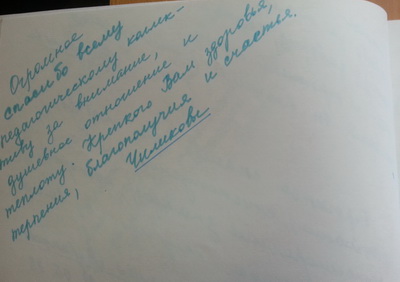 Огромное
спасибо всему
педагогическому коллек-
тиву за внимание,
душевное отношение и
теплоту. Крепкого Вам здоровья,
терпения, благополучия и счастья.
Чиликовы